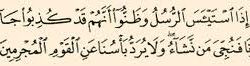 إِذَا ٱسْتَيْـَٔسَ ٱلرُّسُلُ وَظَنُّوٓا۟ أَنَّهُمْ قَدْ كُذِبُوا۟ جَآ
فَنُجِّىَ مَن نَّشَآءُ ۖ وَلَا يُرَدُّ بَأْسُنَا عَنِ ٱلْقَوْمِ ٱلْمُجْرِمِينَ